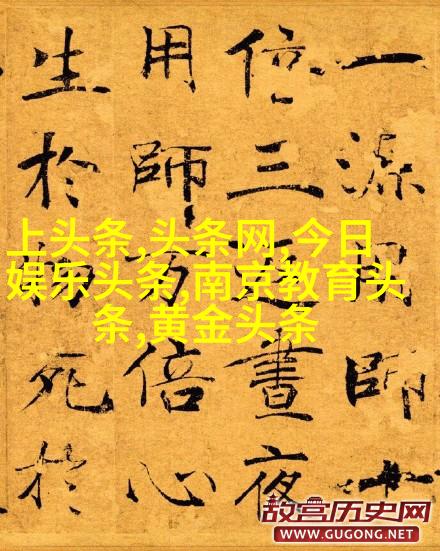 一源用師十
倍三返晝夜
用師万倍心
生於物死於
上头条,头条网,今日
娱乐头条,南京教育头
条,黄金头条
故宫历史网
WWW.GUGONG.NET